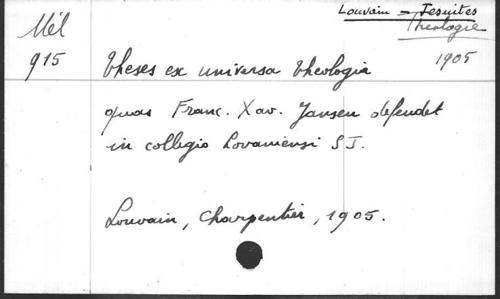 Mél
915
Louvain – Jesuites
Theologie
1905
Theses ex universa theologia
quas Franc. Xav. Jansen defendet
in collegio Lovaniensi S J.
Louvain, Charpentier, 1905.